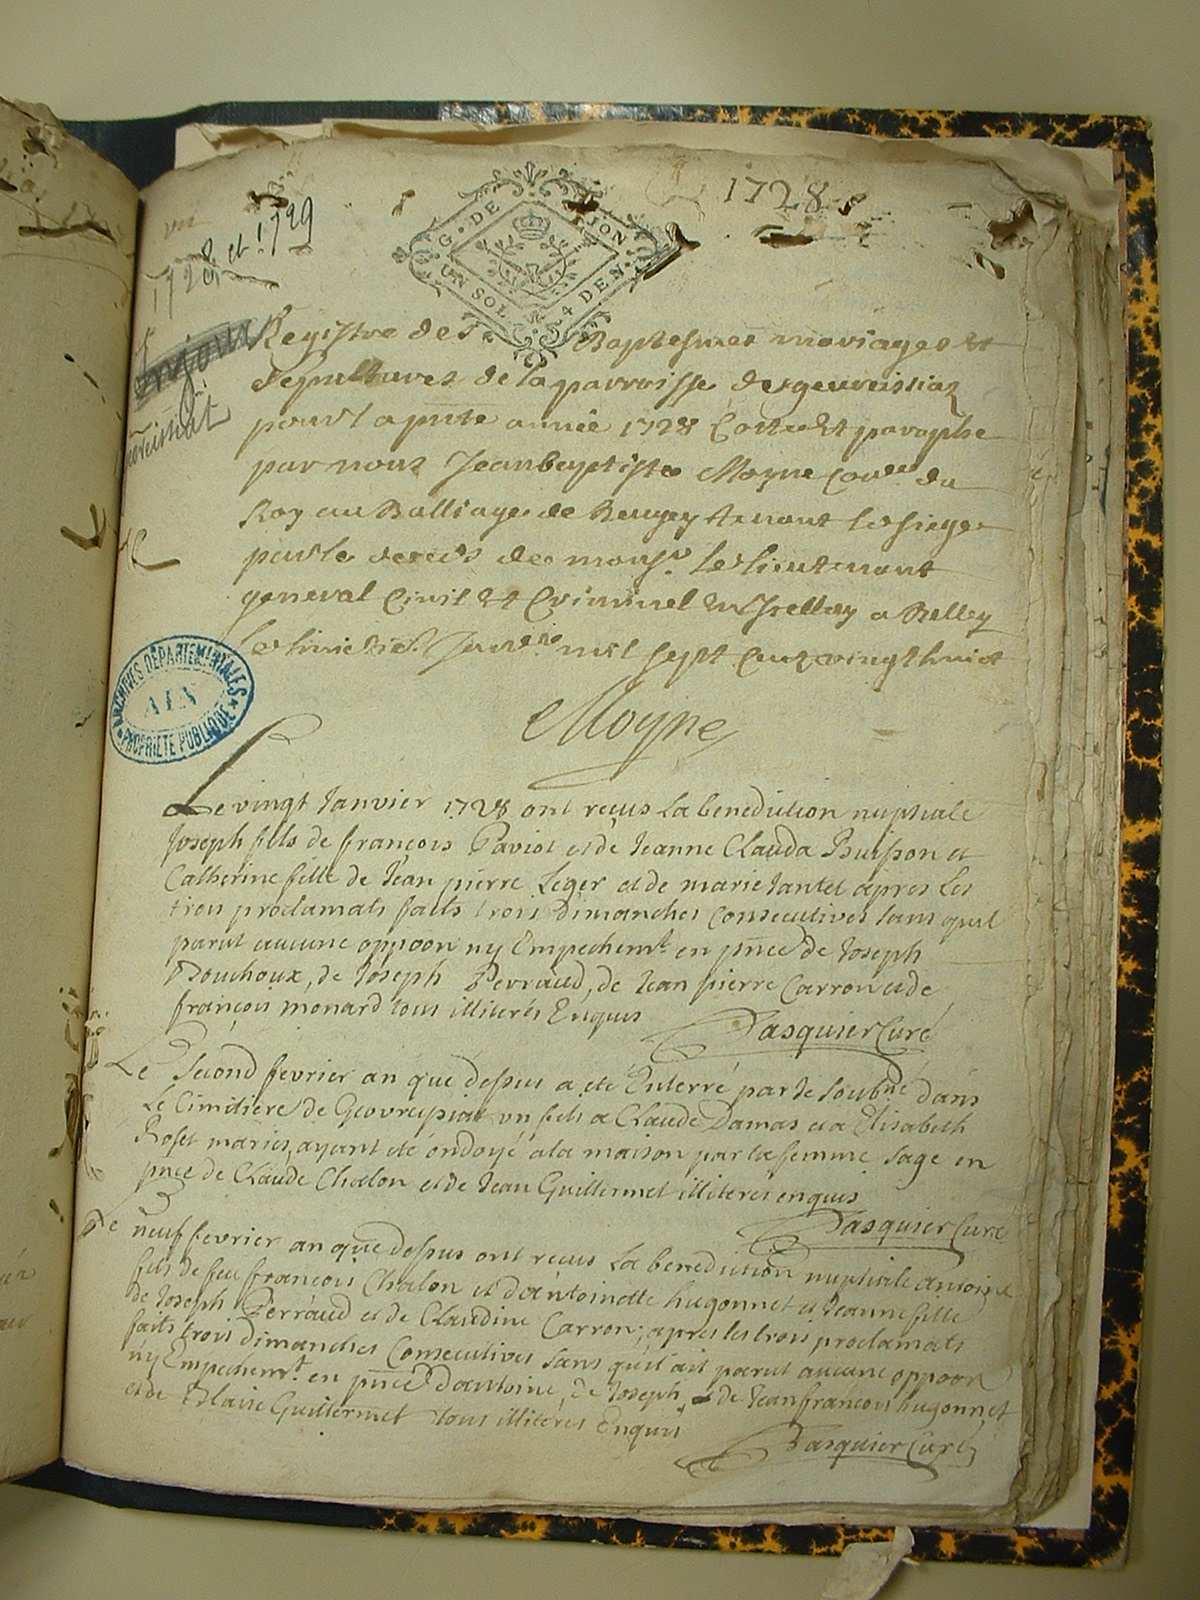 1728
1728 et 1729
G. DE DIJON
UN SOL 4 DEN.
Registre des Baptesmes mariages et
sepultures de la parroisse de geuvreissiaz
pour la pnte année 1728 Cotte et paraphe
par nous Jean baptiste Moyne Coner du
Roy au Balliage de Beugey tenant le siege
pour le deceds de monsr. le lieutenant
general Civil et Criminel
a Belley
Janvier mil sept cent vingt huict
Moyne
ARCHIVES DÉPARTEMENTALES
AIN
PROPRIÉTÉ PUBLIQUE
Le vingt Janvier 1728 ont reçus la benediction nuptiale
Joseph fils de françois Paviot et de Jeanne Clauda Buisson et
Catherine fille de Jean pierre Leger et de marie Jantet apres les
trois proclamats faits trois dimanches consecutives sans quil
parut aucune oppoon ny Empechemt. en pnce de Joseph
Bouchoux, de Joseph Perraud, de Jean pierre Carron et de
françois monard tous illiterés Enquis
Pasquier Curé
Le Second fevrier an que dessus a eté Enterré par le Soubné dans
Le Cimitiere de Geovreissiat un fils a Claude Damas et a Elisabeth
Roset mariés, ayant eté ondoyé a la maison par la femme sage en
pnce de Claude Chalon et de Jean Guillermet illiteres enquis
Pasquier Curé
Le neuf fevrier an que dessus ont recus La benediction nuptiale antoine
fils de feu françois Chalon et d'antoinette hugonnet et Jeanne fille
de Joseph Perraud et de Claudine Carron; apres les trois proclamats
faits trois dimanches Consecutives sans qu'il ait parut aucune oppoon
ny Empechemt. en pnce d'antoine, de Joseph, de Jean françois hugonnet
et de Blaise Guillermet tous illiteres Enquis
Pasquier Curé